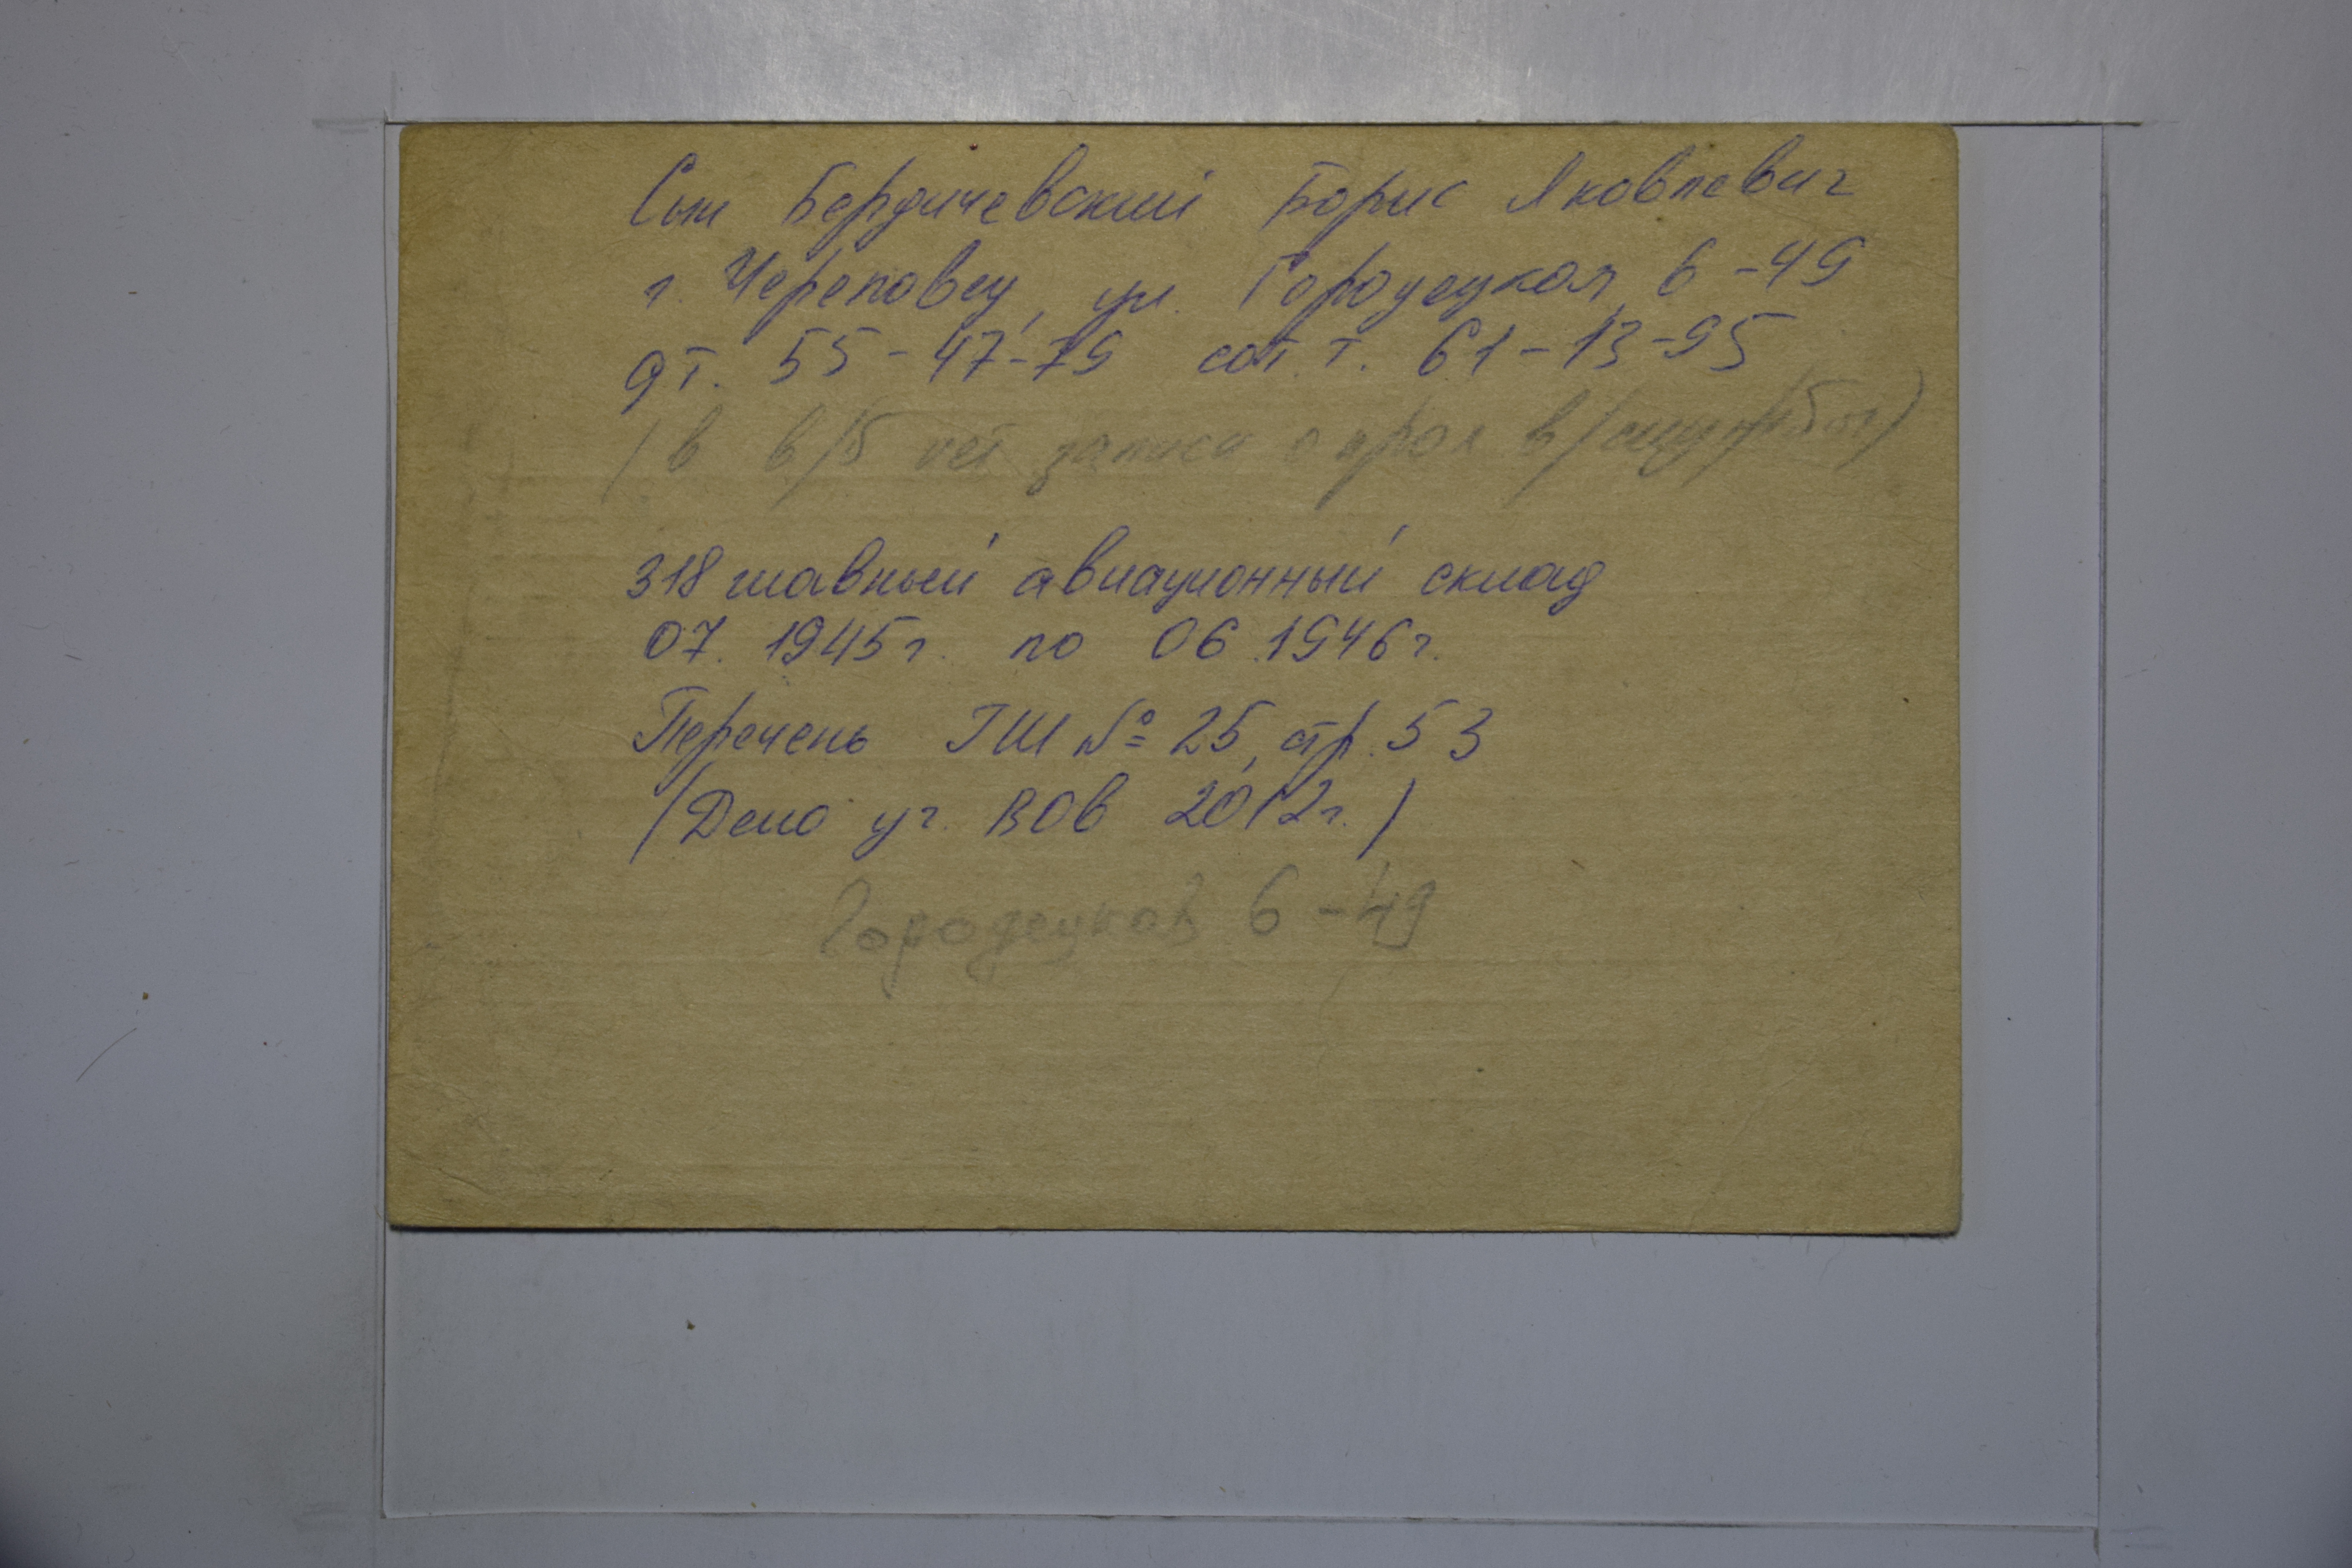 Сын Бердичевский Борис Яковлевич
г. Череповец, ул. Городецкая, 6-49
дт. 55-47-79 сот. т. 61-13-95
(в в/б нет записи о прох в/службы)
318 главный авиационный склад
07. 1945г. по 06.1946г.
Перечень ГШ № 25, стр. 53
(Дело уч. ВОВ 2012г.)
Городецкая 6-49